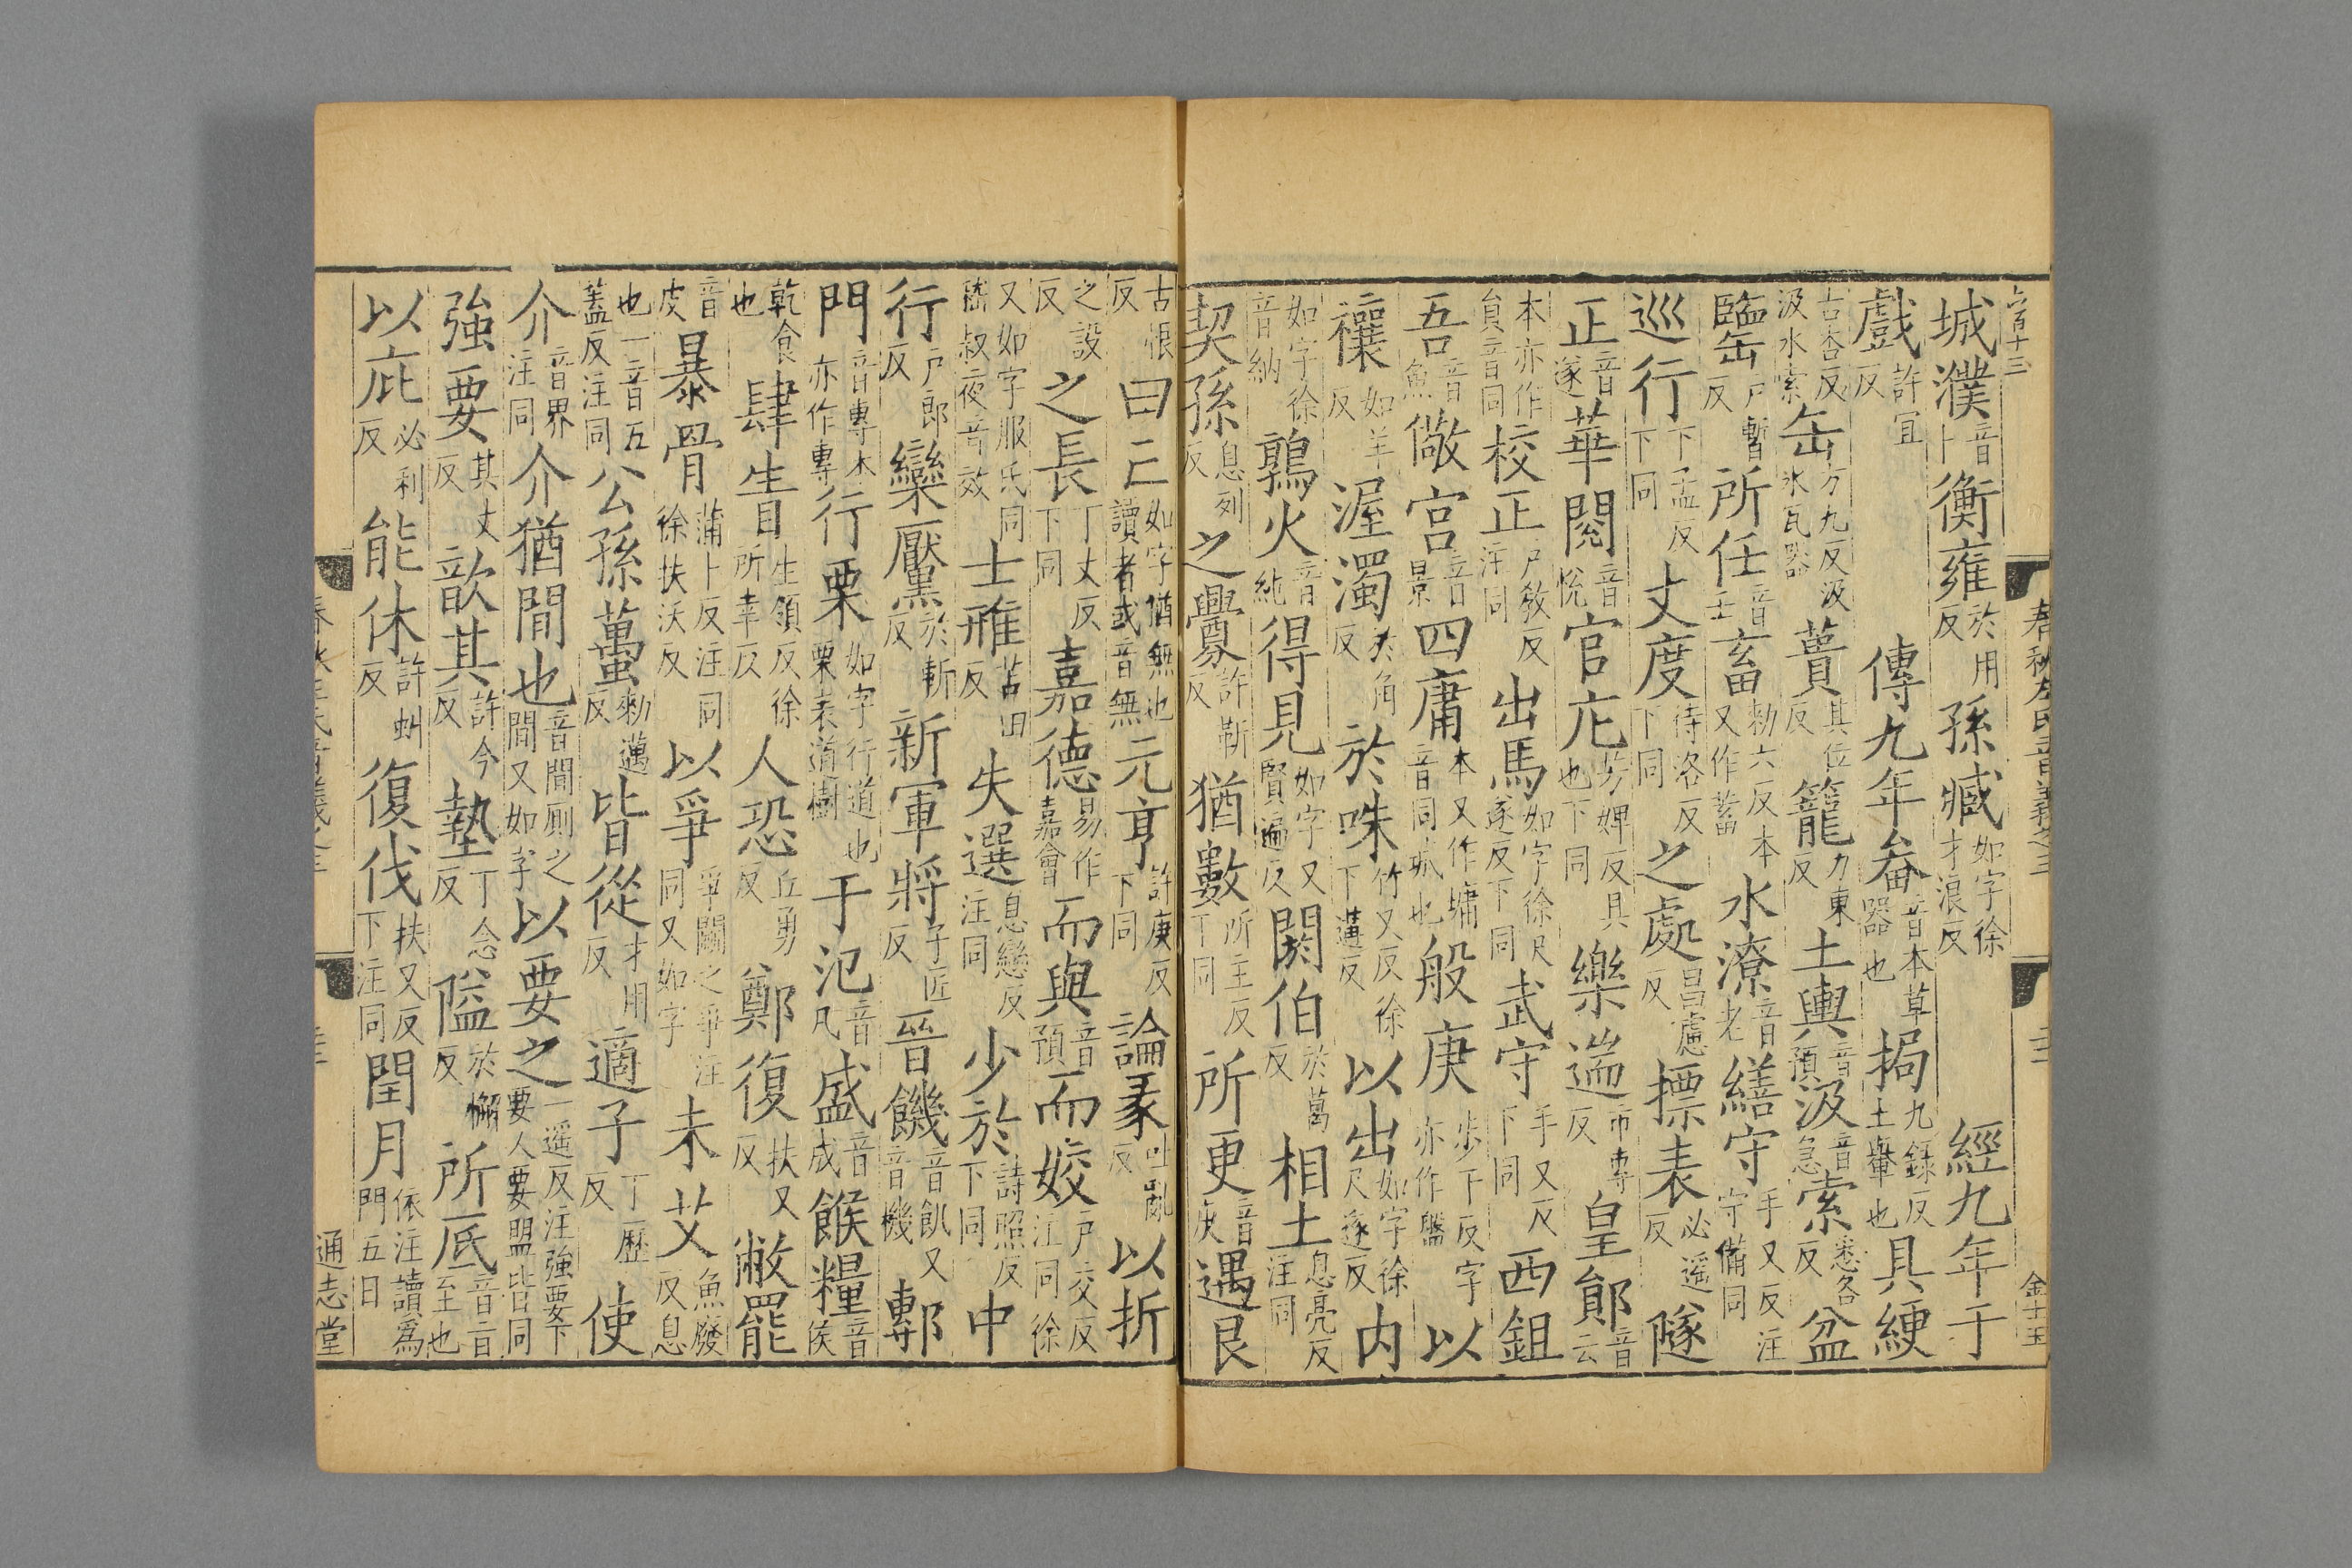 城濮音卜衡雍於用反孫臧如字徐才浪反 經九年于
戲許宜反 傳九年畚音本草器也挶九錄反土轝也具綆
古杏反汲水索缶方九反汲水瓦器蕢其位反籠力東反土輿音預汲音急索悉各反盆
鑑戶暫反所任音壬畜勑六反本又作蓄水潦音老繕守手又反注守備同
巡行下孟反下同丈度待洛反下同之處昌慮反摽表必遥反隧
正音遂華閱音悅官庀芳婢反具也下同樂遄市專反皇鄖音云
本亦作員音同校正戶敎反注同出馬如字徐尺遂反下同武守手又反下同西鉏
吾音魚儆宮音景四庸本又作墉音同城也般庚步下反字亦作盤以
禳如羊反渥濁於角反於咮竹又反徐下遘反以出如字徐尺遂反内
如字徐音納鶉火音純得見如字又賢遍反閼伯於葛反相土息亮反注同
契孫息列反之釁許靳反猶數所主反下同所更音庚遇艮
古恨反曰亡如字猶無也讀者或音無元亨許庚反下同論彖吐亂反以折
之設反之長丁丈反下同嘉德易作嘉會而與音預而姣戶交反注同徐
又如字服氏同嵇叔夜音效士雃苦田反失選息戀反注同少於詩照反下同中
行戶郎反欒黶於斬反新軍將子匠反晉饑音飢又音機鄟
門音專本亦作專行栗如字行道也栗表道樹于氾音凡盛音成餱糧音侯
乾食也肆眚生領反徐所幸反人恐丘勇反鄭復扶又反敝罷
音皮暴骨蒲卜反注同徐扶沃反以爭爭鬬之爭注同又如字未艾魚廢反息
也一音五蓋反注同公孫蠆勑邁反皆從才用反適子丁歷反使
介音界注同介猶閒也音閒厠之閒又如字以要之一遥反注強要下要人要盟皆同
強要其丈反歆其許今反墊丁念反隘於懈反所厎音旨至也
以庇必利反能休許虯反復伐扶又反下注同閏月依注讀爲門五日
春秋左氏音義之三
通志堂